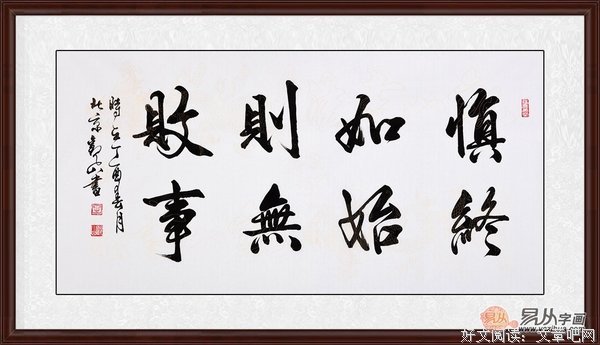 慎終
如始
則無
敗事
時在丁酉春月
北京山書
易从字画
好文阅读：文章吧网